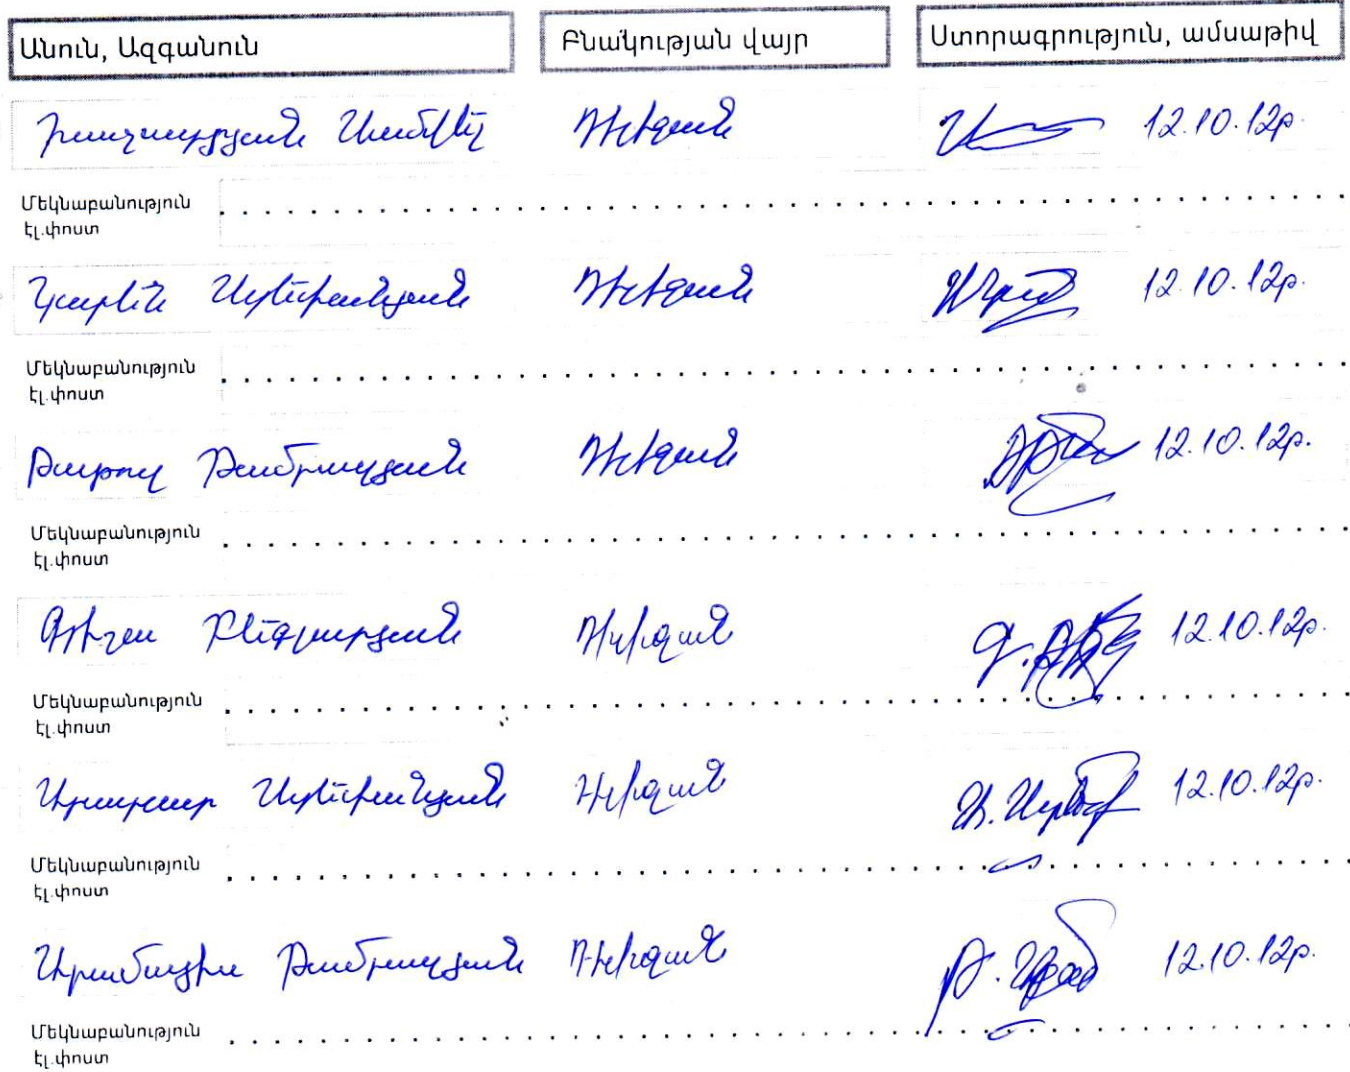 Անուն, Ազգանուն Բնակության վայր Ստորագրություն, ամսաթիվ
Խաչատրյան Սամվել Դիլիջան 12.10.12թ.
Մեկնաբանություն
էլ.փոստ
Կարեն Ստեփանյան Դիլիջան 12.10.12թ.
Մեկնաբանություն
էլ.փոստ
Թամրազյան Դիլիջան 12.10.12թ.
Մեկնաբանություն
էլ.փոստ
Գրիշա Բեգլարյան Դիլիջան 12.10.12թ.
Մեկնաբանություն
էլ.փոստ
Ստեփանյան Դիլիջան 12.10.12թ.
Մեկնաբանություն
էլ.փոստ
Արամայիս Թամրազյան Դիլիջան 12.10.12թ.
Մեկնաբանություն
էլ.փոստ